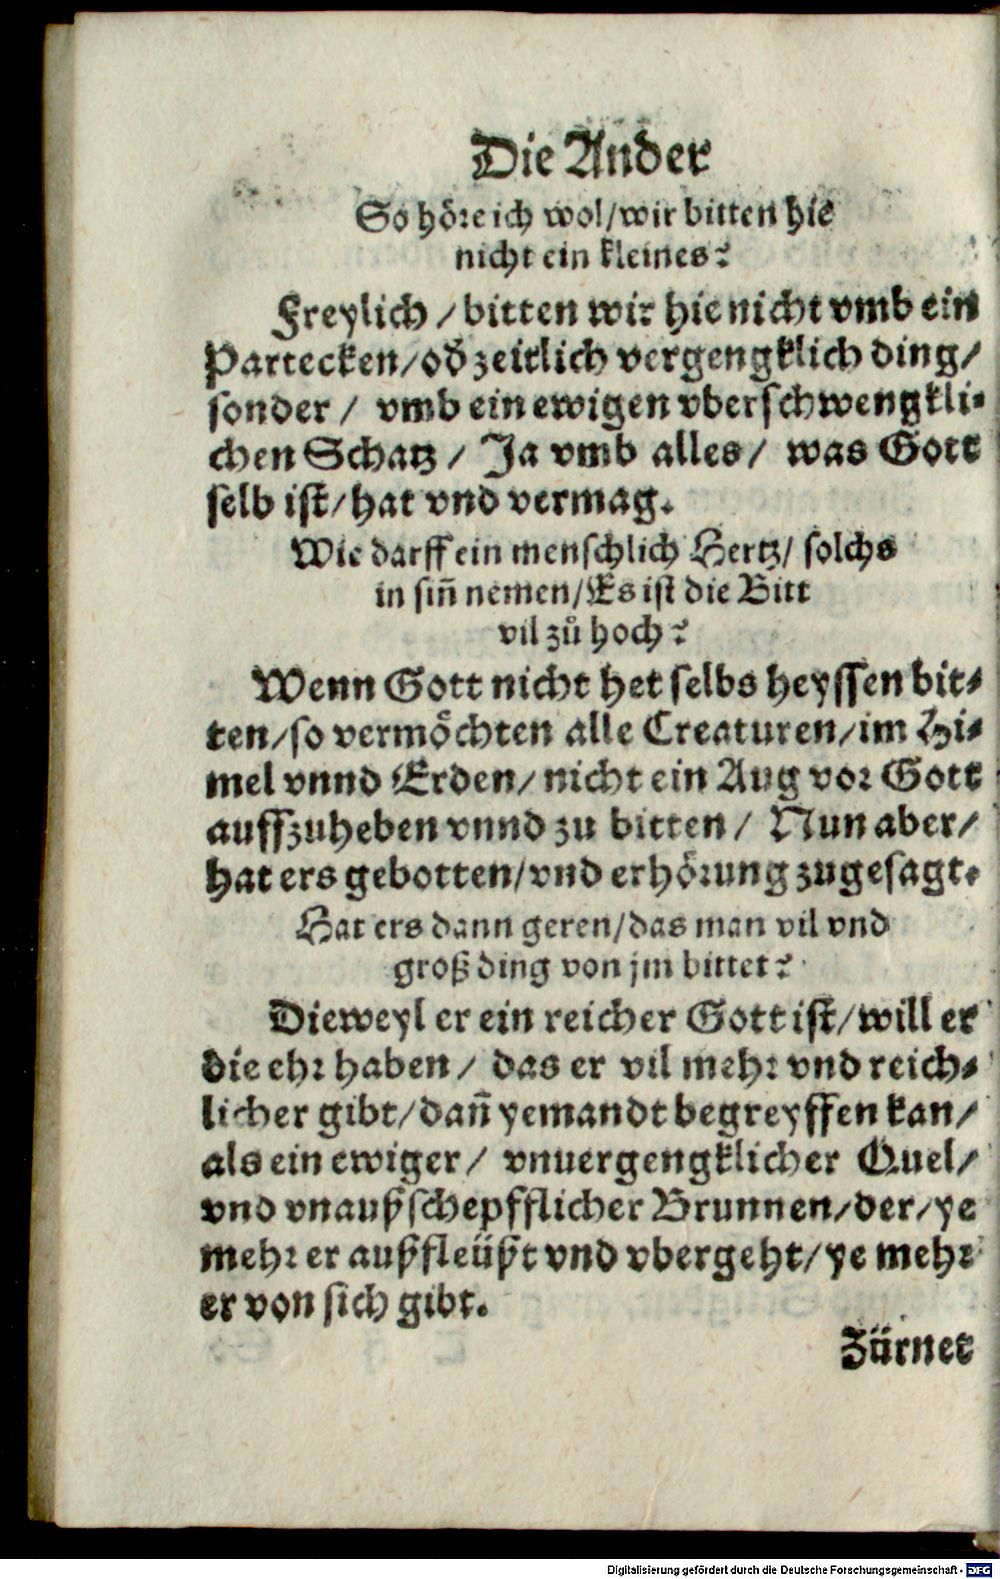 Die Ander
So höre ich wol/wir bitten hie
nicht ein kleines?
Freylich/bitten wir hie nicht vmb ein
Partecken/od zeitlich vergengklich ding/
sonder/ vmb ein ewigen vberschwengkli-
chen Schatz/ Ja vmb alles/ was Gott
selb ist/hat vnd vermag.
Wie darff ein menschlich Hertz/ solchs
in siñ nemen/Es ist die Bitt
vil zů hoch?
Wenn Gott nicht het selbs heyssen bit-
ten/so vermöchten alle Creaturen/im Hi-
mel vnnd Erden/nicht ein Aug vor Gott
auffzuheben vnnd zu bitten/ Nun aber/
hat ers gebotten/vnd erhörung zugesagt.
Hat ers dann geren/das man vil vnd
groß ding von jm bittet?
Dieweyl er ein reicher Gott ist/will er
die ehr haben/ das er vil mehr vnd reich-
licher gibt/dañ yemandt begreyffen kan/
als ein ewiger/ vnuergengklicher Quel/
vnd vnaußschepfflicher Brunnen/der/ye
mehr er außfleüßt vnd vbergeht/ye mehr
er von sich gibt.
Zürnet
Digitalisierung gefördert durch die Deutsche Forschungsgemeinschaft - DFG